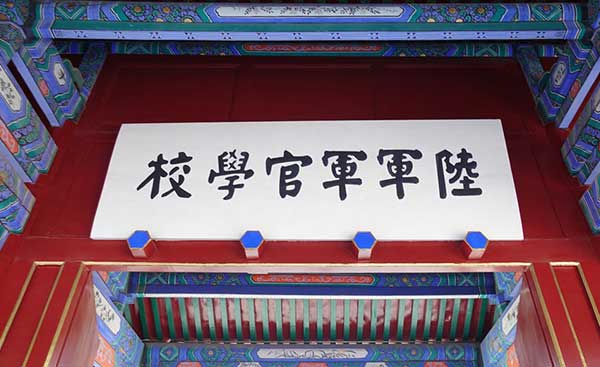 陸軍軍官學校